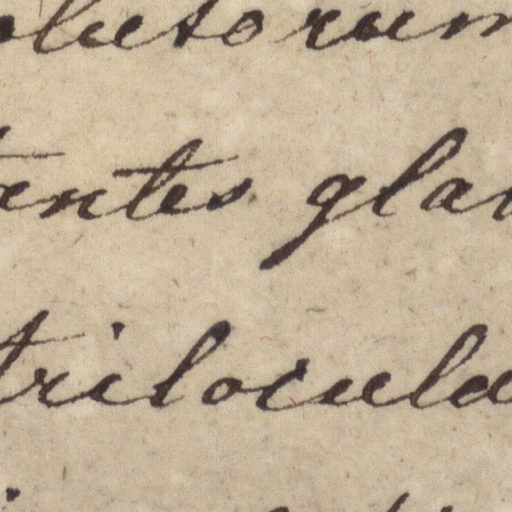 lutorum
antes gla
trilocula